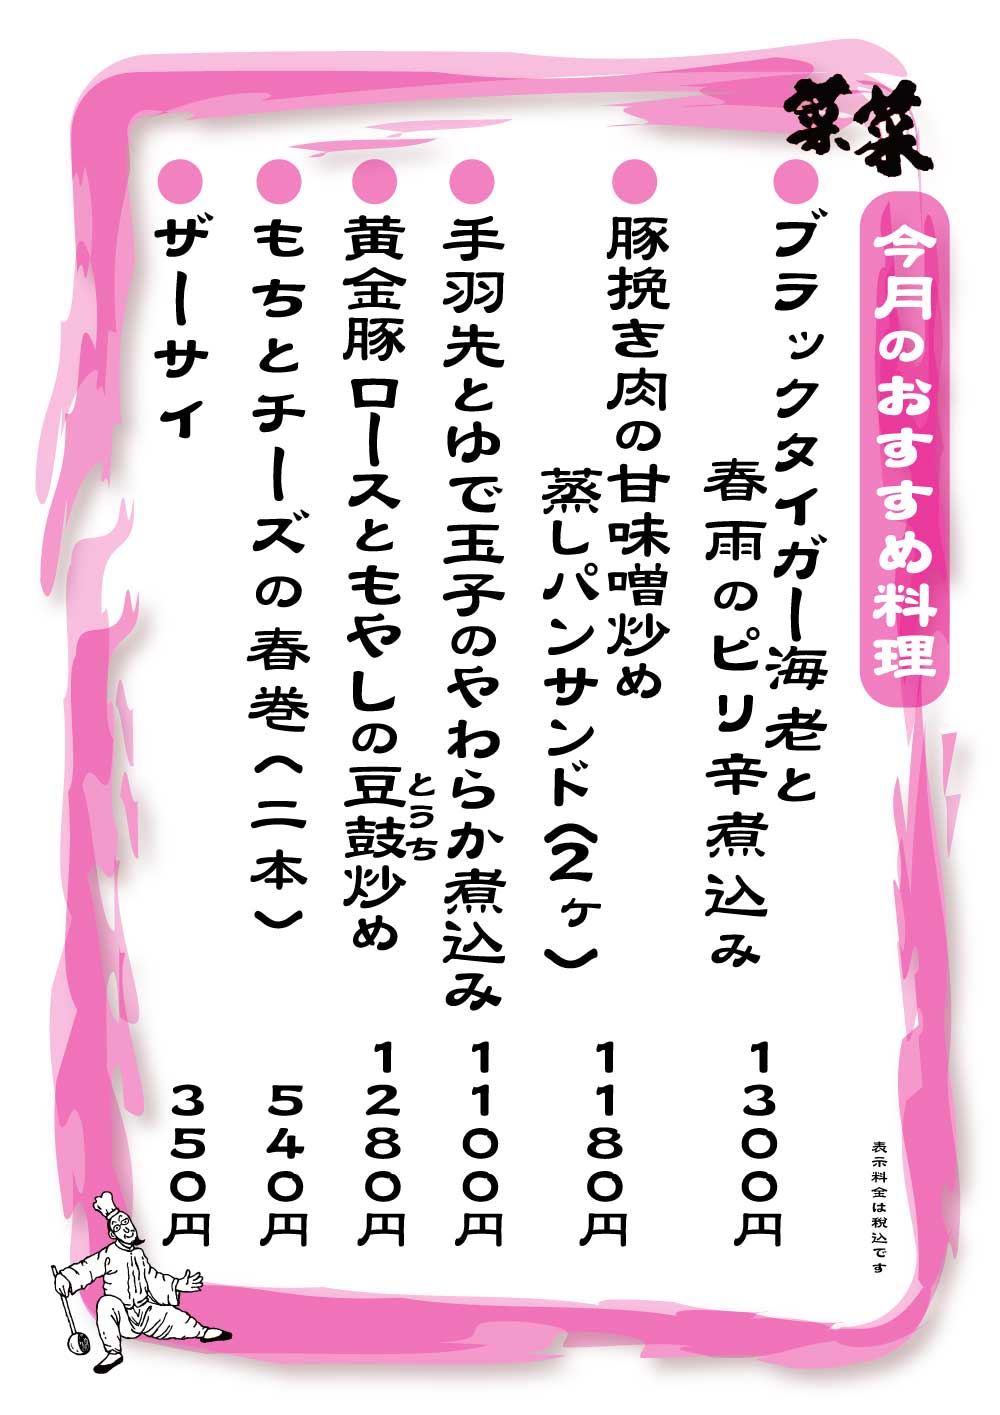 菜菜
今月のおすすめ料理
ブラックタイガー海老と
春雨のピリ辛煮込み
1300円
豚挽き肉の甘味噌炒め
蒸しパンサンド〈2ヶ〉
1180円
手羽先とゆで玉子のやわらか煮込み
1100円
黄金豚ロースともやしの豆鼓炒め
とうち
1280円
もちとチーズの春巻〈二本〉
540円
ザーサイ
350円
表示料金は税込です